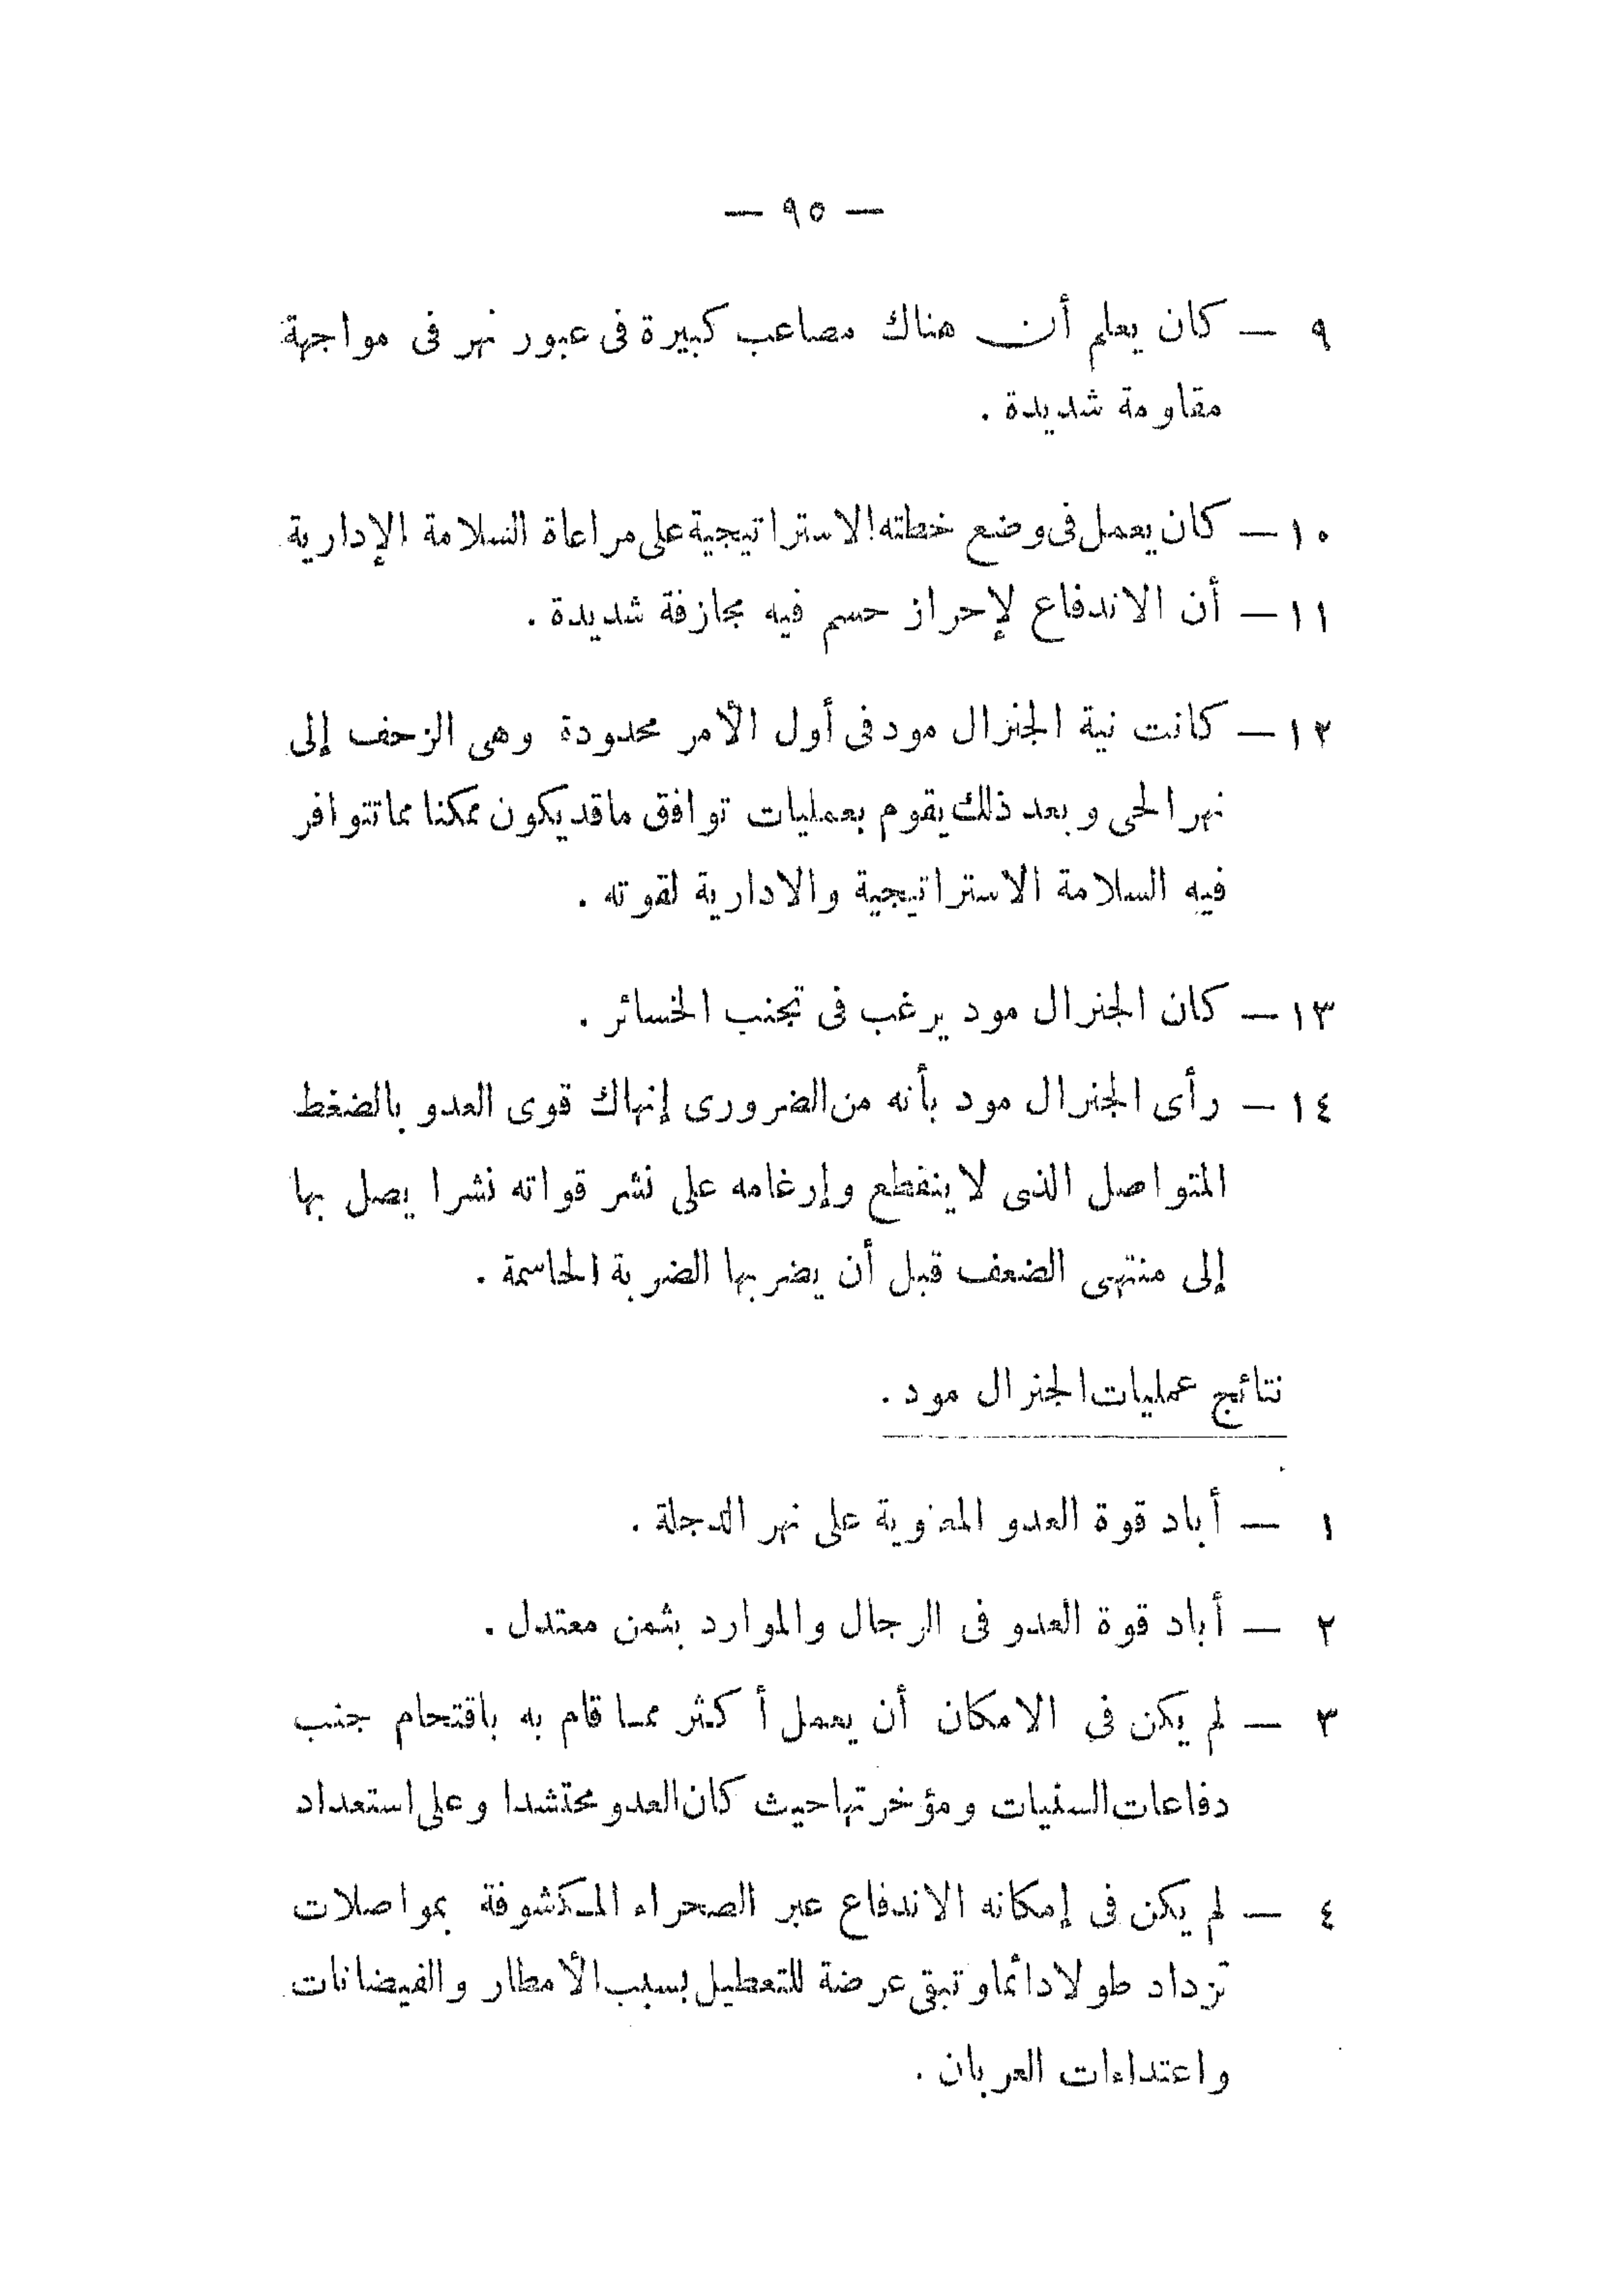 — ٩٥ —
٩ — كان يعلم أن هناك مصاعب كبيرة فى عبور نهر فى مواجهة
مقاومة شديدة .
١٠ — كان يعمل فى وضع خطته الاستراتيجية على مراعاة السلامة الإدارية
١١ — أن الاندفاع لإحراز حسم فيه مجازفة شديدة .
١٢ — كانت نية الجنرال مود فى أول الأمر محدودة وهى الزحف إلى
نهر الحى وبعد ذلك يقوم بعمليات توافق ماقد يكون ممكنا مما تتوافر
فيه السلامة الاستراتيجية والادارية لقوته .
١٣ — كان الجنرال مود يرغب فى تجنب الخسائر .
١٤ — رأى الجنرال مود بأنه من الضرورى إنهاك قوى العدو بالضغط
المتواصل الذى لا ينقطع وإرغامه على نشر قواته نشرا يصل بها
إلى منتهى الضعف قبل أن يضربها الضربة الحاسمة .
نتائج عمليات الجنرال مود .
١ — أباد قوة العدو المعنوية على نهر الدجلة .
٢ — أباد قوة العدو فى الرجال والموارد بثمن معتدل .
٣ — لم يكن فى الامكان أن يعمل أكثر مما قام به باقتحام جنب
دفاعات السنيات ومؤخرتها حيث كان العدو محتشدا وعلى استعداد
٤ — لم يكن فى إمكانه الاندفاع عبر الصحراء المكشوفة بمواصلات
تزداد طولا دائما وتبقى عرضة للتعطيل بسبب الأمطار والفيضانات
واعتداءات العربان .